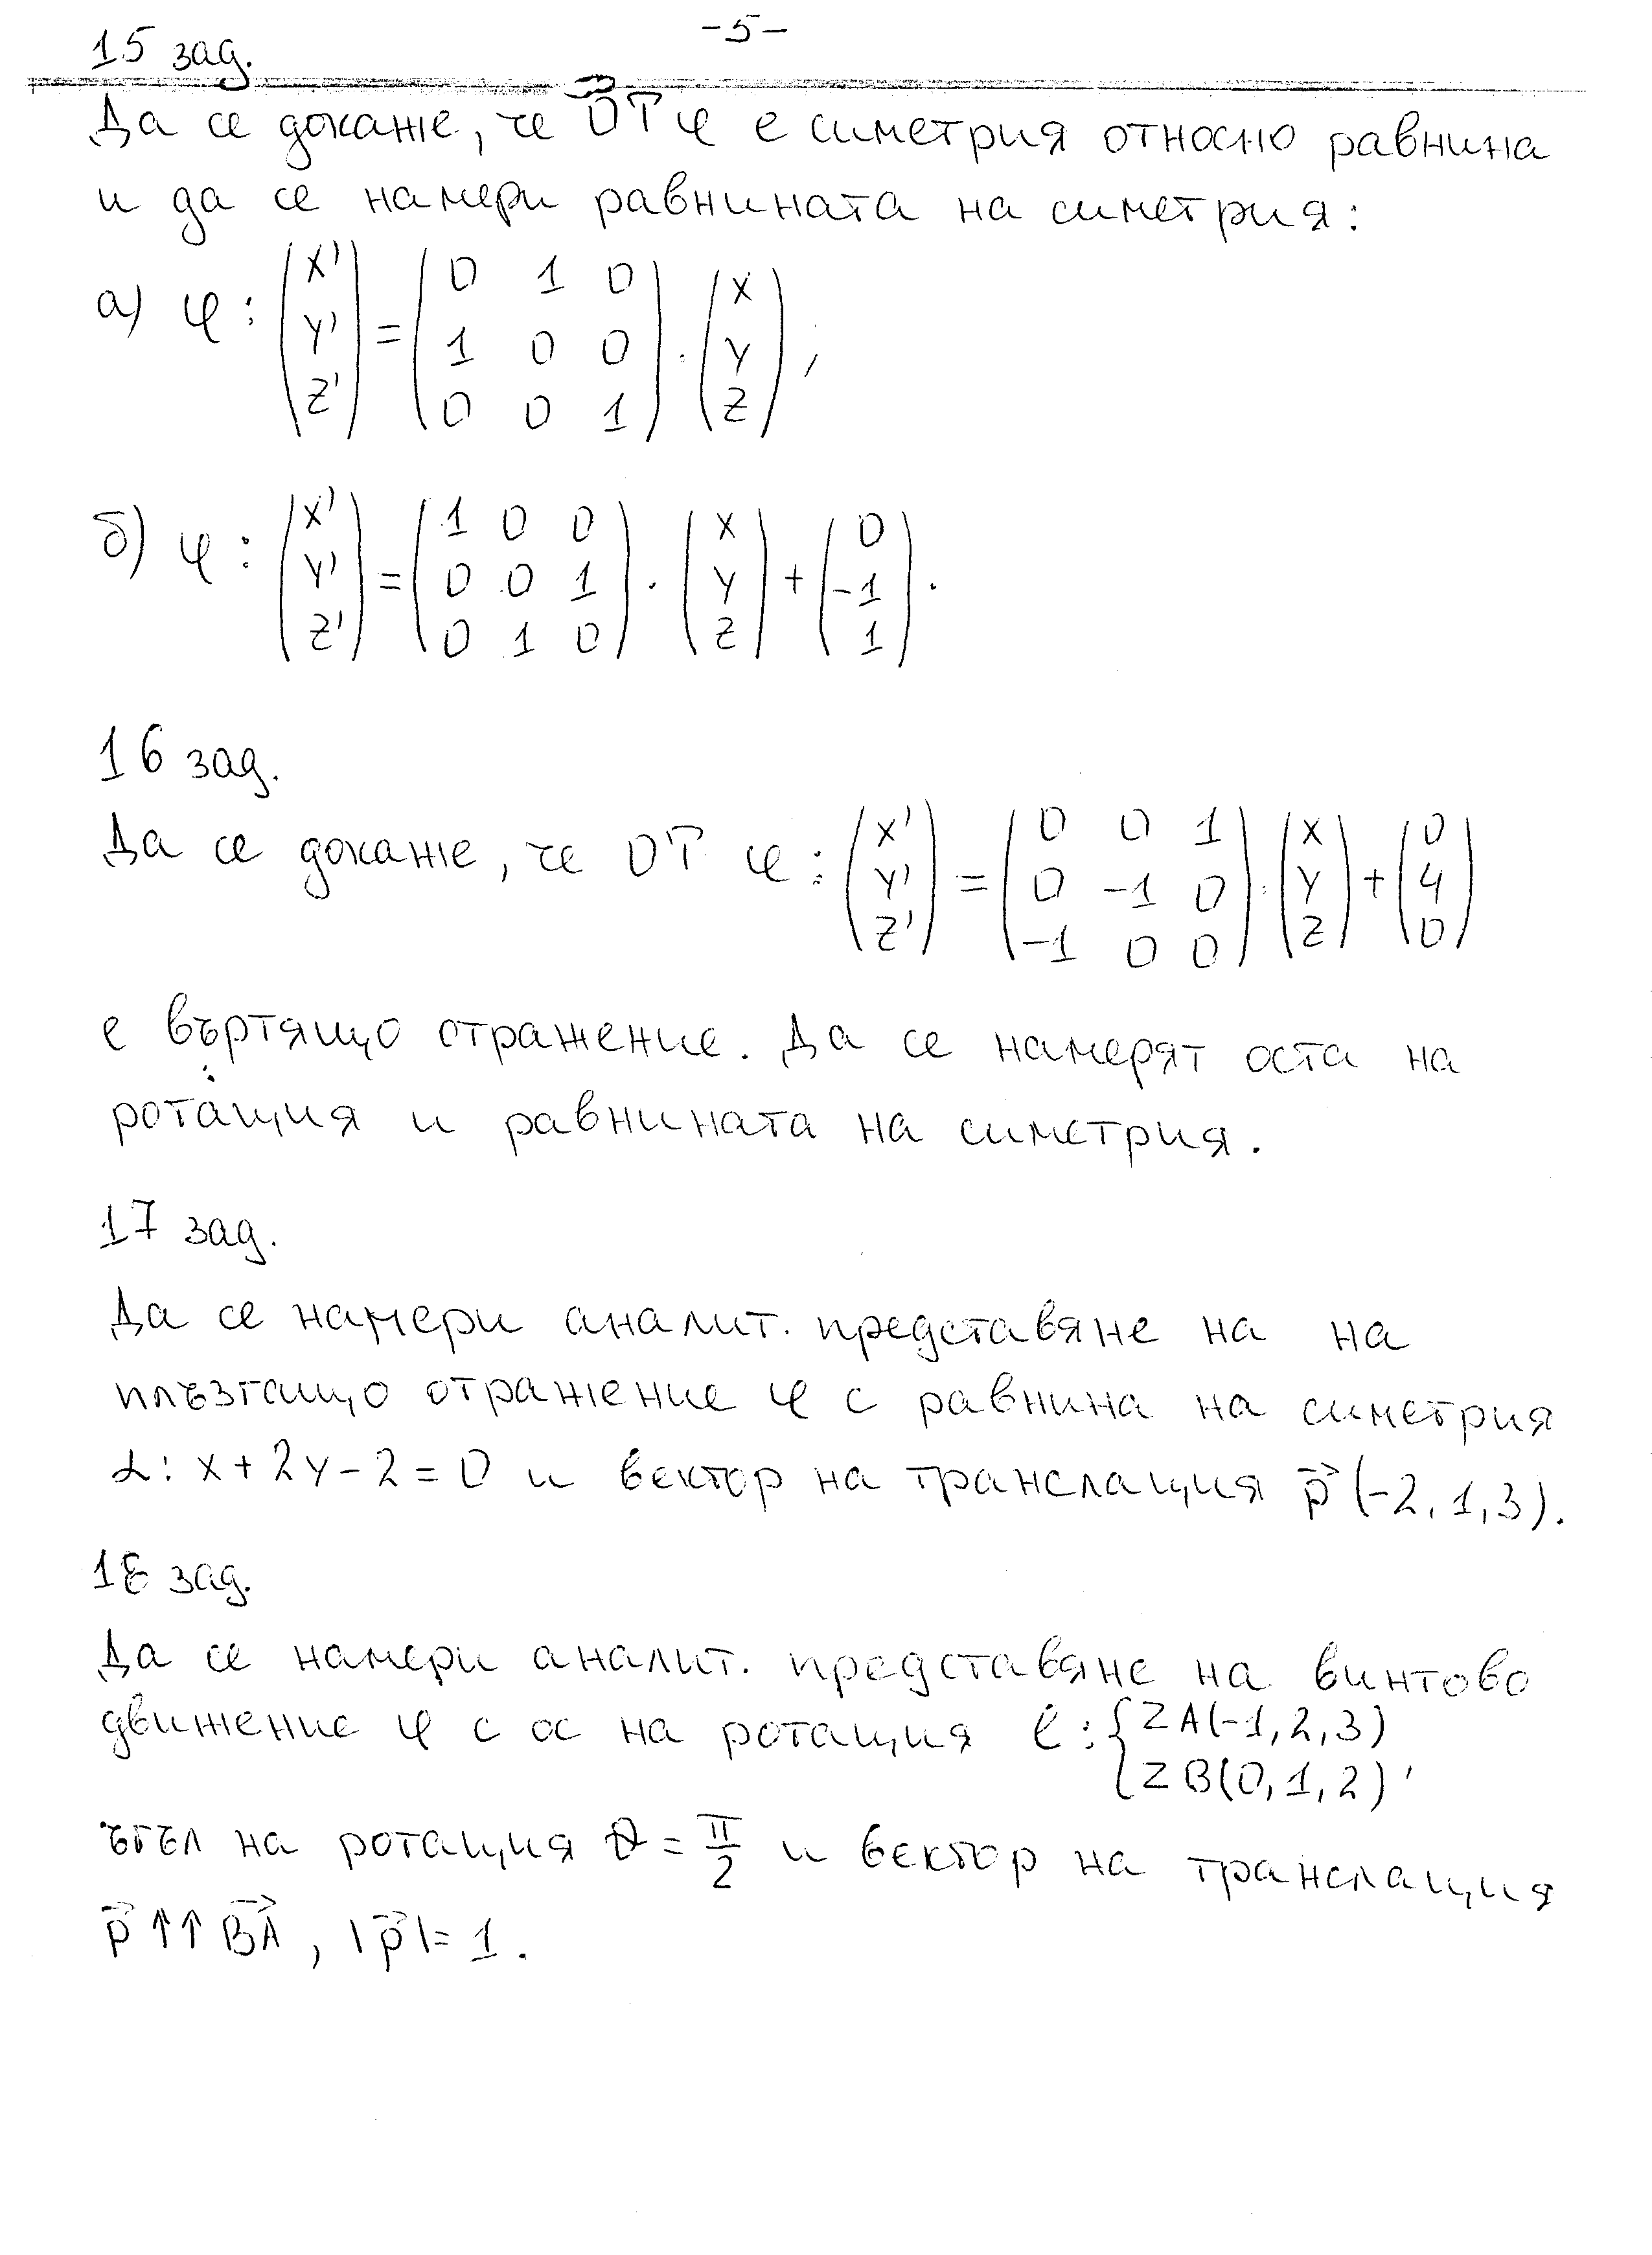 -5-
15 зад.
Да се докаже, че ОТ φ е симетрия относно равнина
и да се намери равнината на симетрия:
а) φ: (x' y' z') = (0 1 0; 1 0 0; 0 0 1) . (x y z),
б) φ: (x' y' z') = (1 0 0; 0 0 1; 0 1 0) . (x y z) + (0 -1 1).
16 зад.
Да се докаже, че ОТ φ: (x' y' z') = (0 0 1; 0 -1 0; -1 0 0) . (x y z) + (0 4 0)
е въртящо отражение. Да се намерят оста на
ротация и равнината на симетрия.
17 зад.
Да се намери аналит. представяне на на
плъзгащо отражение φ с равнина на симетрия
α: x + 2y - 2 = 0 и вектор на транслация p→ (-2, 1, 3).
18 зад.
Да се намери аналит. представяне на винтово
движение φ с ос на ротация ℓ: { Z A(-1, 2, 3)
Z B(0, 1, 2) ,
ъгъл на ротация θ = π/2 и вектор на транслация
p→ ↑↑ BA→, |p→| = 1.